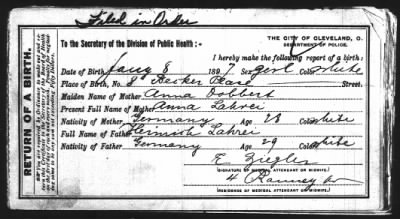 Filed in Order
THE CITY OF CLEVELAND, O.
DEPARTMENT OF POLICE.
To the Secretary of the Division of Public Health:
I hereby make the following report of a birth:
Date of Birth Jany 8 1897 Sex girl Color white
Place of Birth, No. 8 Becker Place Street.
Maiden Name of Mother Anna Dobbert
Present Full Name of Mother Anna Lahrei
Nativity of Mother Germany Age 28 Color white
Full Name of Father Heinrich Lahrei
Nativity of Father Germany Age 29 Color white
E Ziegler
(SIGNATURE OF MEDICAL ATTENDANT OR MIDWIFE)
4 Ramsey
(RESIDENCE OF MEDICAL ATTENDANT OR MIDWIFE)
RETURN OF A BIRTH.